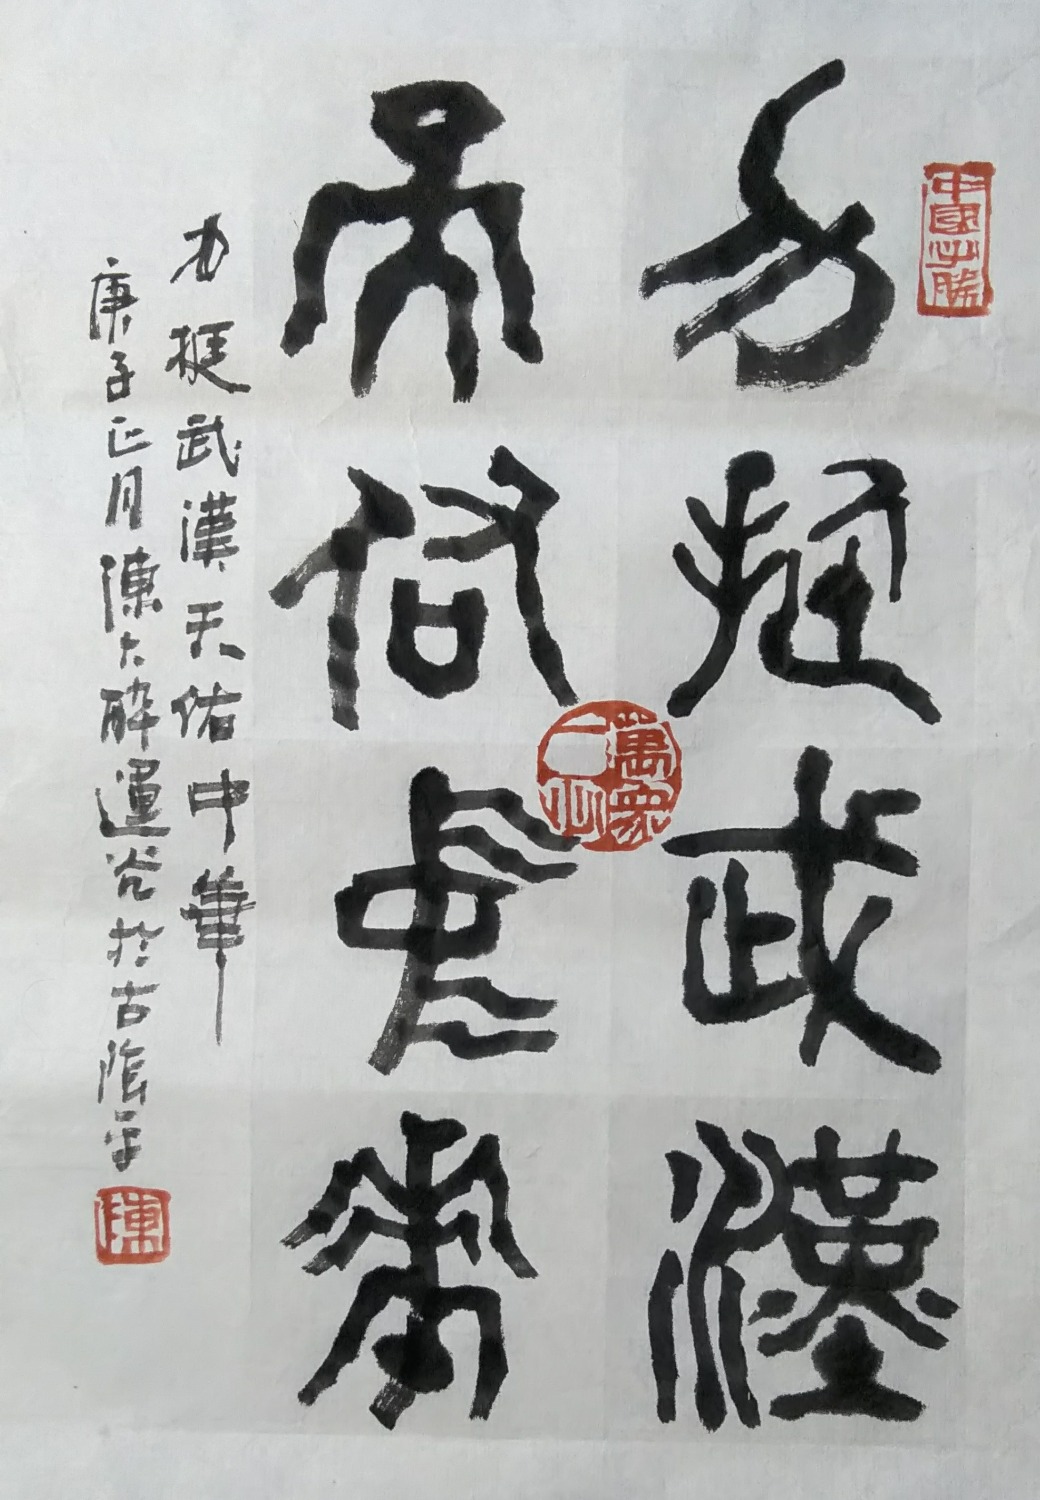 中國必勝
力挺武漢
天佑中華
萬眾一心
力挺武漢天佑中華
庚子正月陳大醉運光於古陰平
陳